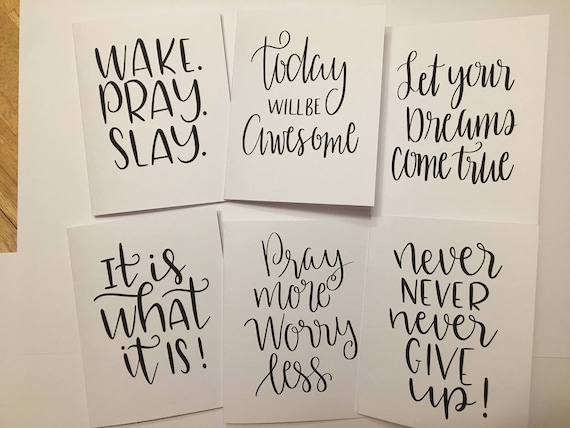 WAKE.
PRAY.
SLAY.
today
WILL BE
Awesome
Let your
Dreams
come true
It is
what
it is!
Pray
more
Worry
less
never
NEVER
never
GIVE
up!